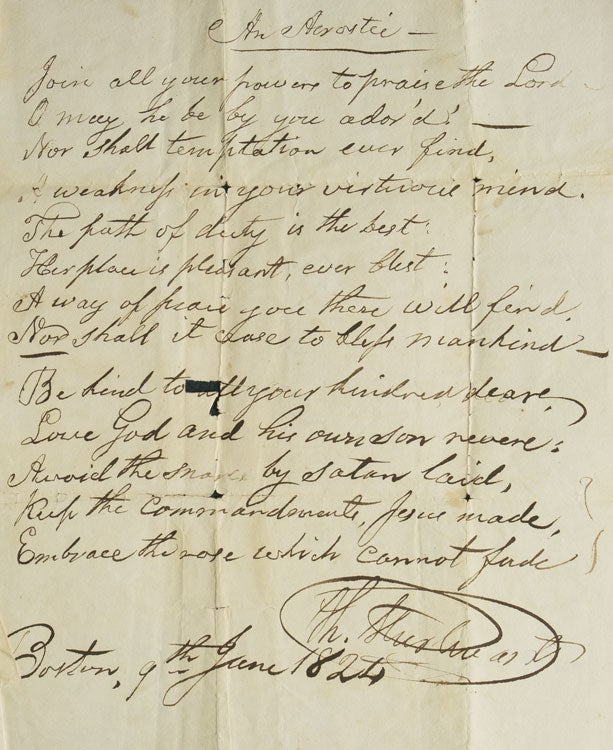 An Acrostic —
Join all your powers to praise the Lord
O may he be by you ador'd! —
Nor shall temptation ever find,
A weakness in your virtuous mind.
The path of duty is the best:
Her place is pleasant, ever blest:
A way of peace you there will find,
Nor shall it cease to bless mankind —
Be kind to all your kindred deare,
Love God and his own son revere:
Avoid the snares by satan laid,
Keep the Commandments, Jesus made,
Embrace the rose which cannot fade
Th.
Boston, 9th June 1824